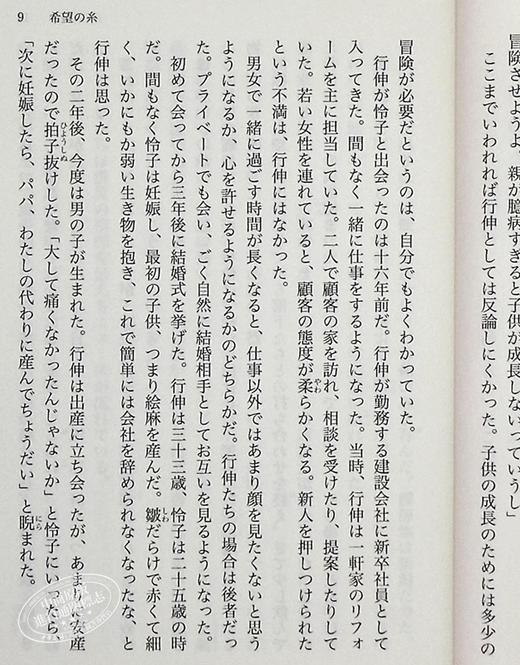 冒険させようよ。親が臆病すぎると子供が成長しないっていうし」
ここまでいわれれば行伸としては反論しにくかった。子供の成長のためには多少の
9 希望の糸
冒険が必要だというのは、自分でもよくわかっていた。
行伸が怜子と出会ったのは十六年前だ。行伸が勤務する建設会社に新卒社員として
入ってきた。間もなく一緒に仕事をするようになった。当時、行伸は一軒家のリフォ
ームを主に担当していた。二人で顧客の家を訪れ、相談を受けたり、提案したりして
いた。若い女性を連れていると、顧客の態度が柔らかくなる。新人を押しつけられた
という不満は、行伸にはなかった。
男女で一緒に過ごす時間が長くなると、仕事以外ではあまり顔を見たくないと思う
ようになるか、心を許せるようになるかのどちらかだ。行伸たちの場合は後者だっ
た。プライベートでも会い、ごく自然に結婚相手としてお互いを見るようになった。
初めて会ってから三年後に結婚式を挙げた。行伸は三十三歳、怜子は二十五歳の時
だ。間もなく怜子は妊娠し、最初の子供、つまり絵麻を産んだ。皺だらけで赤くて細
く、いかにもか弱い生き物を抱き、これで簡単には会社を辞められなくなったな、と
行伸は思った。
その二年後、今度は男の子が生まれた。行伸は出産に立ち会ったが、あまりに安産
だったので拍子抜けした。「大して痛くなかったんじゃないか」と怜子にいったら、
「次に妊娠したら、パパ、わたしの代わりに産んでちょうだい」と睨まれた。